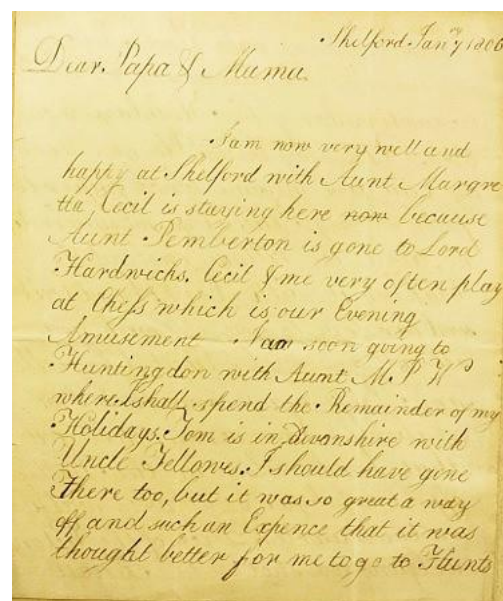 Shelford Jan.ry 7 1806
Dear Papa & Mama.
I am now very well and
happy at Shelford with Aunt Margre
tta, Cecil is staying here now because
Aunt Pemberton is gone to Lord
Hardwichs. Cecil & me very often play
at Chess which is our Evening
Amusement I am soon going to
Huntingdon with Aunt M. P
where I shall spend the Remainder of my
Holidays. Tom is in Devonshire with
Uncle Fellowes. I should have gone
There too, but it was so great a way
off and such an Expence that it was
thought better for me to go to Hunts